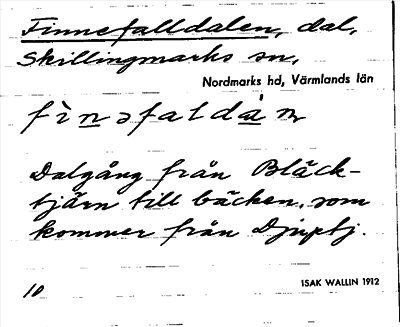 Finnefalldalen, dal,
Skillingmarks sn,
Nordmarks hd, Värmlands län
Dalgång från Bläck-
tjärn till bäcken, som
kommer från Djuptj.
10
ISAK WALLIN 1912